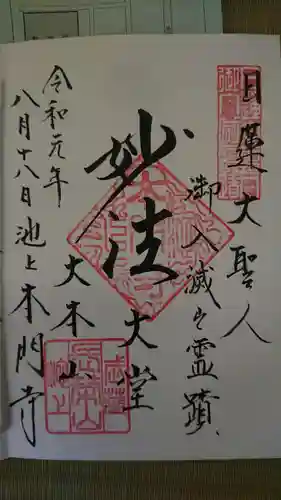 日蓮大聖人
御入滅之霊蹟
妙法
大堂
大本山
令和元年
八月十八日池上本門寺